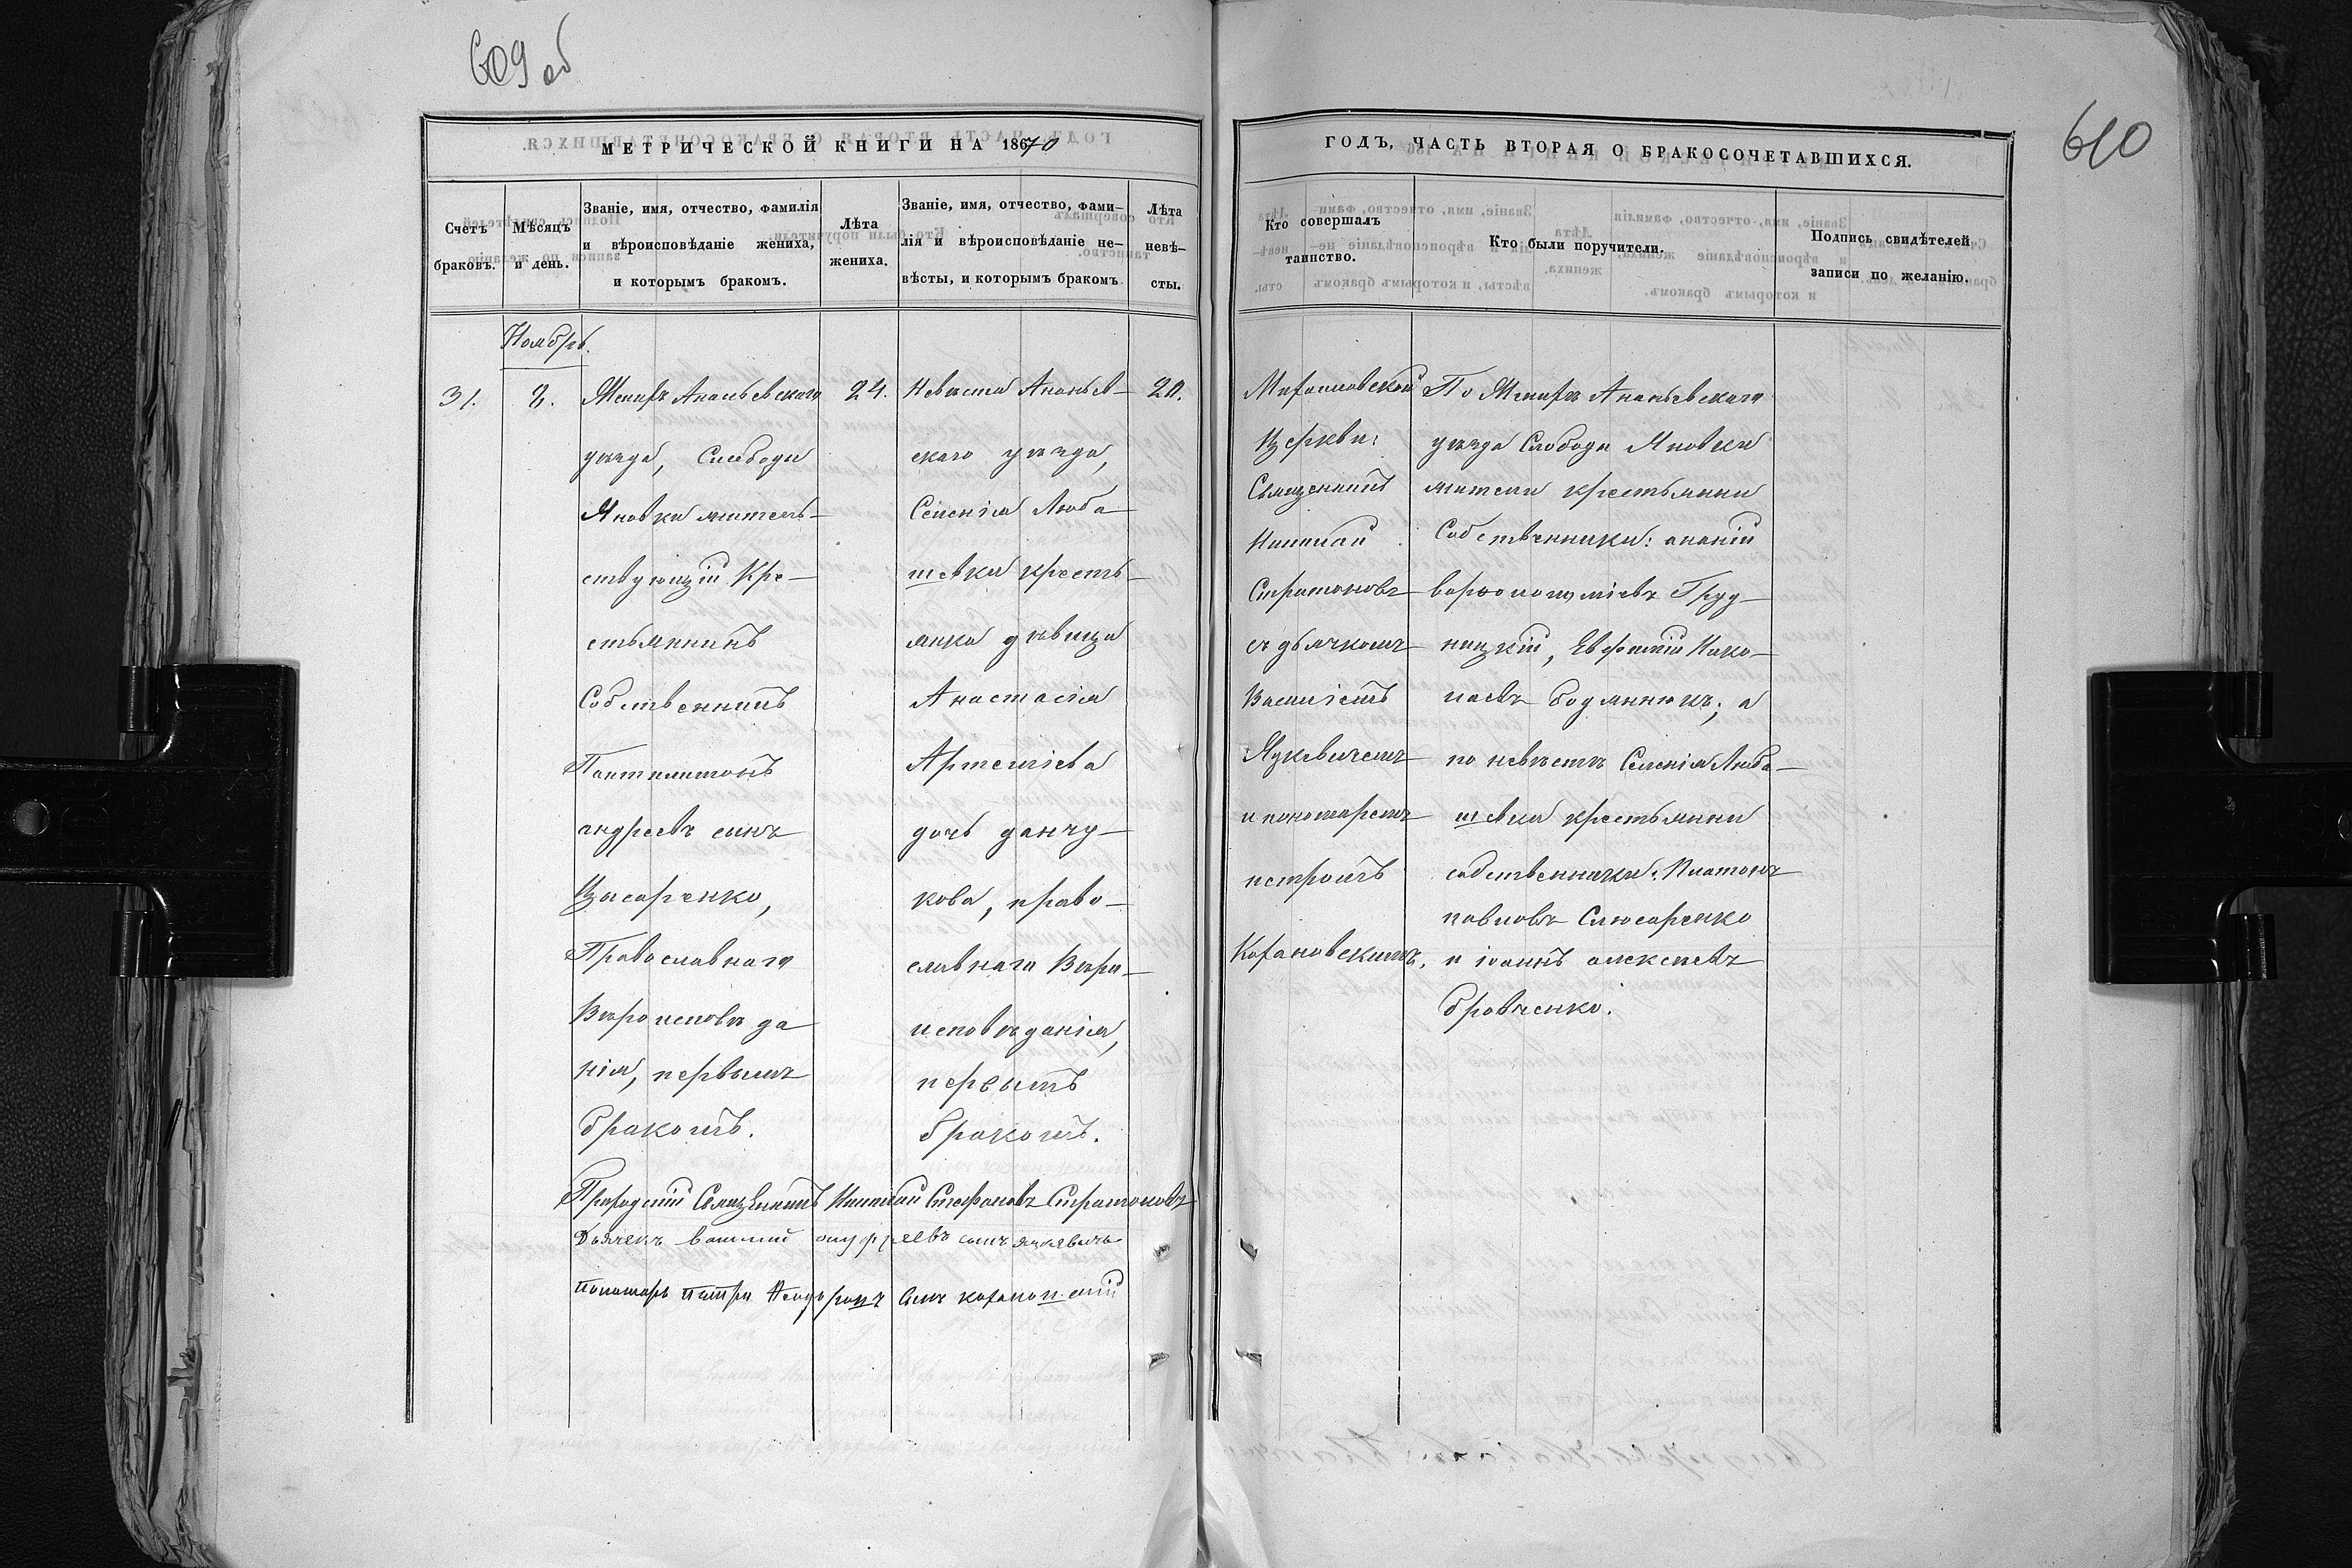 609 об
МЕТРИЧЕСКОЙ КНИГИ НА 1870
Счетъ
браковъ.
Мѣсяцъ
и день.
Званіе, имя, отчество, фамилія
и вѣроисповѣданіе жениха,
и которымъ бракомъ.
Лѣта
жениха.
Званіе, имя, отчество, фами-
лія и вѣроисповѣданіе не-
вѣсты, и которымъ бракомъ
Лѣта
невѣ-
сты.
Ноябрь.
31.
2.
Женихъ Ананьевскаго
уѣзда, Слободы
Яновки житель-
ствующій Кре-
стьянинъ
Собственникъ
Пантелимонъ
андреевъ сынъ
Цысаренко,
Православнаго
Вѣроисповѣда
нія, первымъ
бракомъ.
24.
Невѣста Ананьев-
скаго уѣзда,
Селенія Люба-
шевки кресть-
янка дѣвица
Анастасія
Артеміева
дочь данчу-
кова, право-
славнаго Вѣро-
исповѣданія,
первымъ
бракомъ.
20.
Приходскій Священникъ Николай Стефановъ Стратоновъ
Дьячекъ василій онуфріевъ сынъ яцкевичъ
пономарь петръ сынъ
610
ГОДЪ, ЧАСТЬ ВТОРАЯ О БРАКОСОЧЕТАВШИХСЯ.
Кто совершалъ
таинство.
Кто были поручители.
Подпись свидѣтелей
записи по желанію.
Церкви:
Священникъ
Николай
Стратоновъ
съ дьячкомъ
Василіемъ
Яцкевичемъ
и пономаремъ
петромъ
По Женихѣ Ананьевскаго
уѣзда Слободы Яновки
жители крестьяни
Собственники: ананій
варфоломеміевъ Груд-
ницкій, Евфимій Нико-
лаевъ бодянюкъ; а
по невѣстѣ Селенія Люба-
шевки крестьяни
собственники: Платонъ
павловъ Слюсаренко
и іоаннъ алексѣевъ
бровченко.